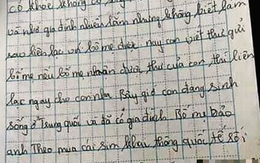 có khỏe không có
và nhớ gia đình nhiều lắm nhưng không biết làm
sao liên lạc với bố mẹ được nay con viết thư gửi
bố mẹ nếu bố mẹ nhận được thư của con thì liên
lạc ngay cho con nha Bây giờ con đang sinh
sống ở Trung quốc và đã có gia đình Bố mẹ bảo
anh Theo mua cái sim khau thông quốc tế rồi